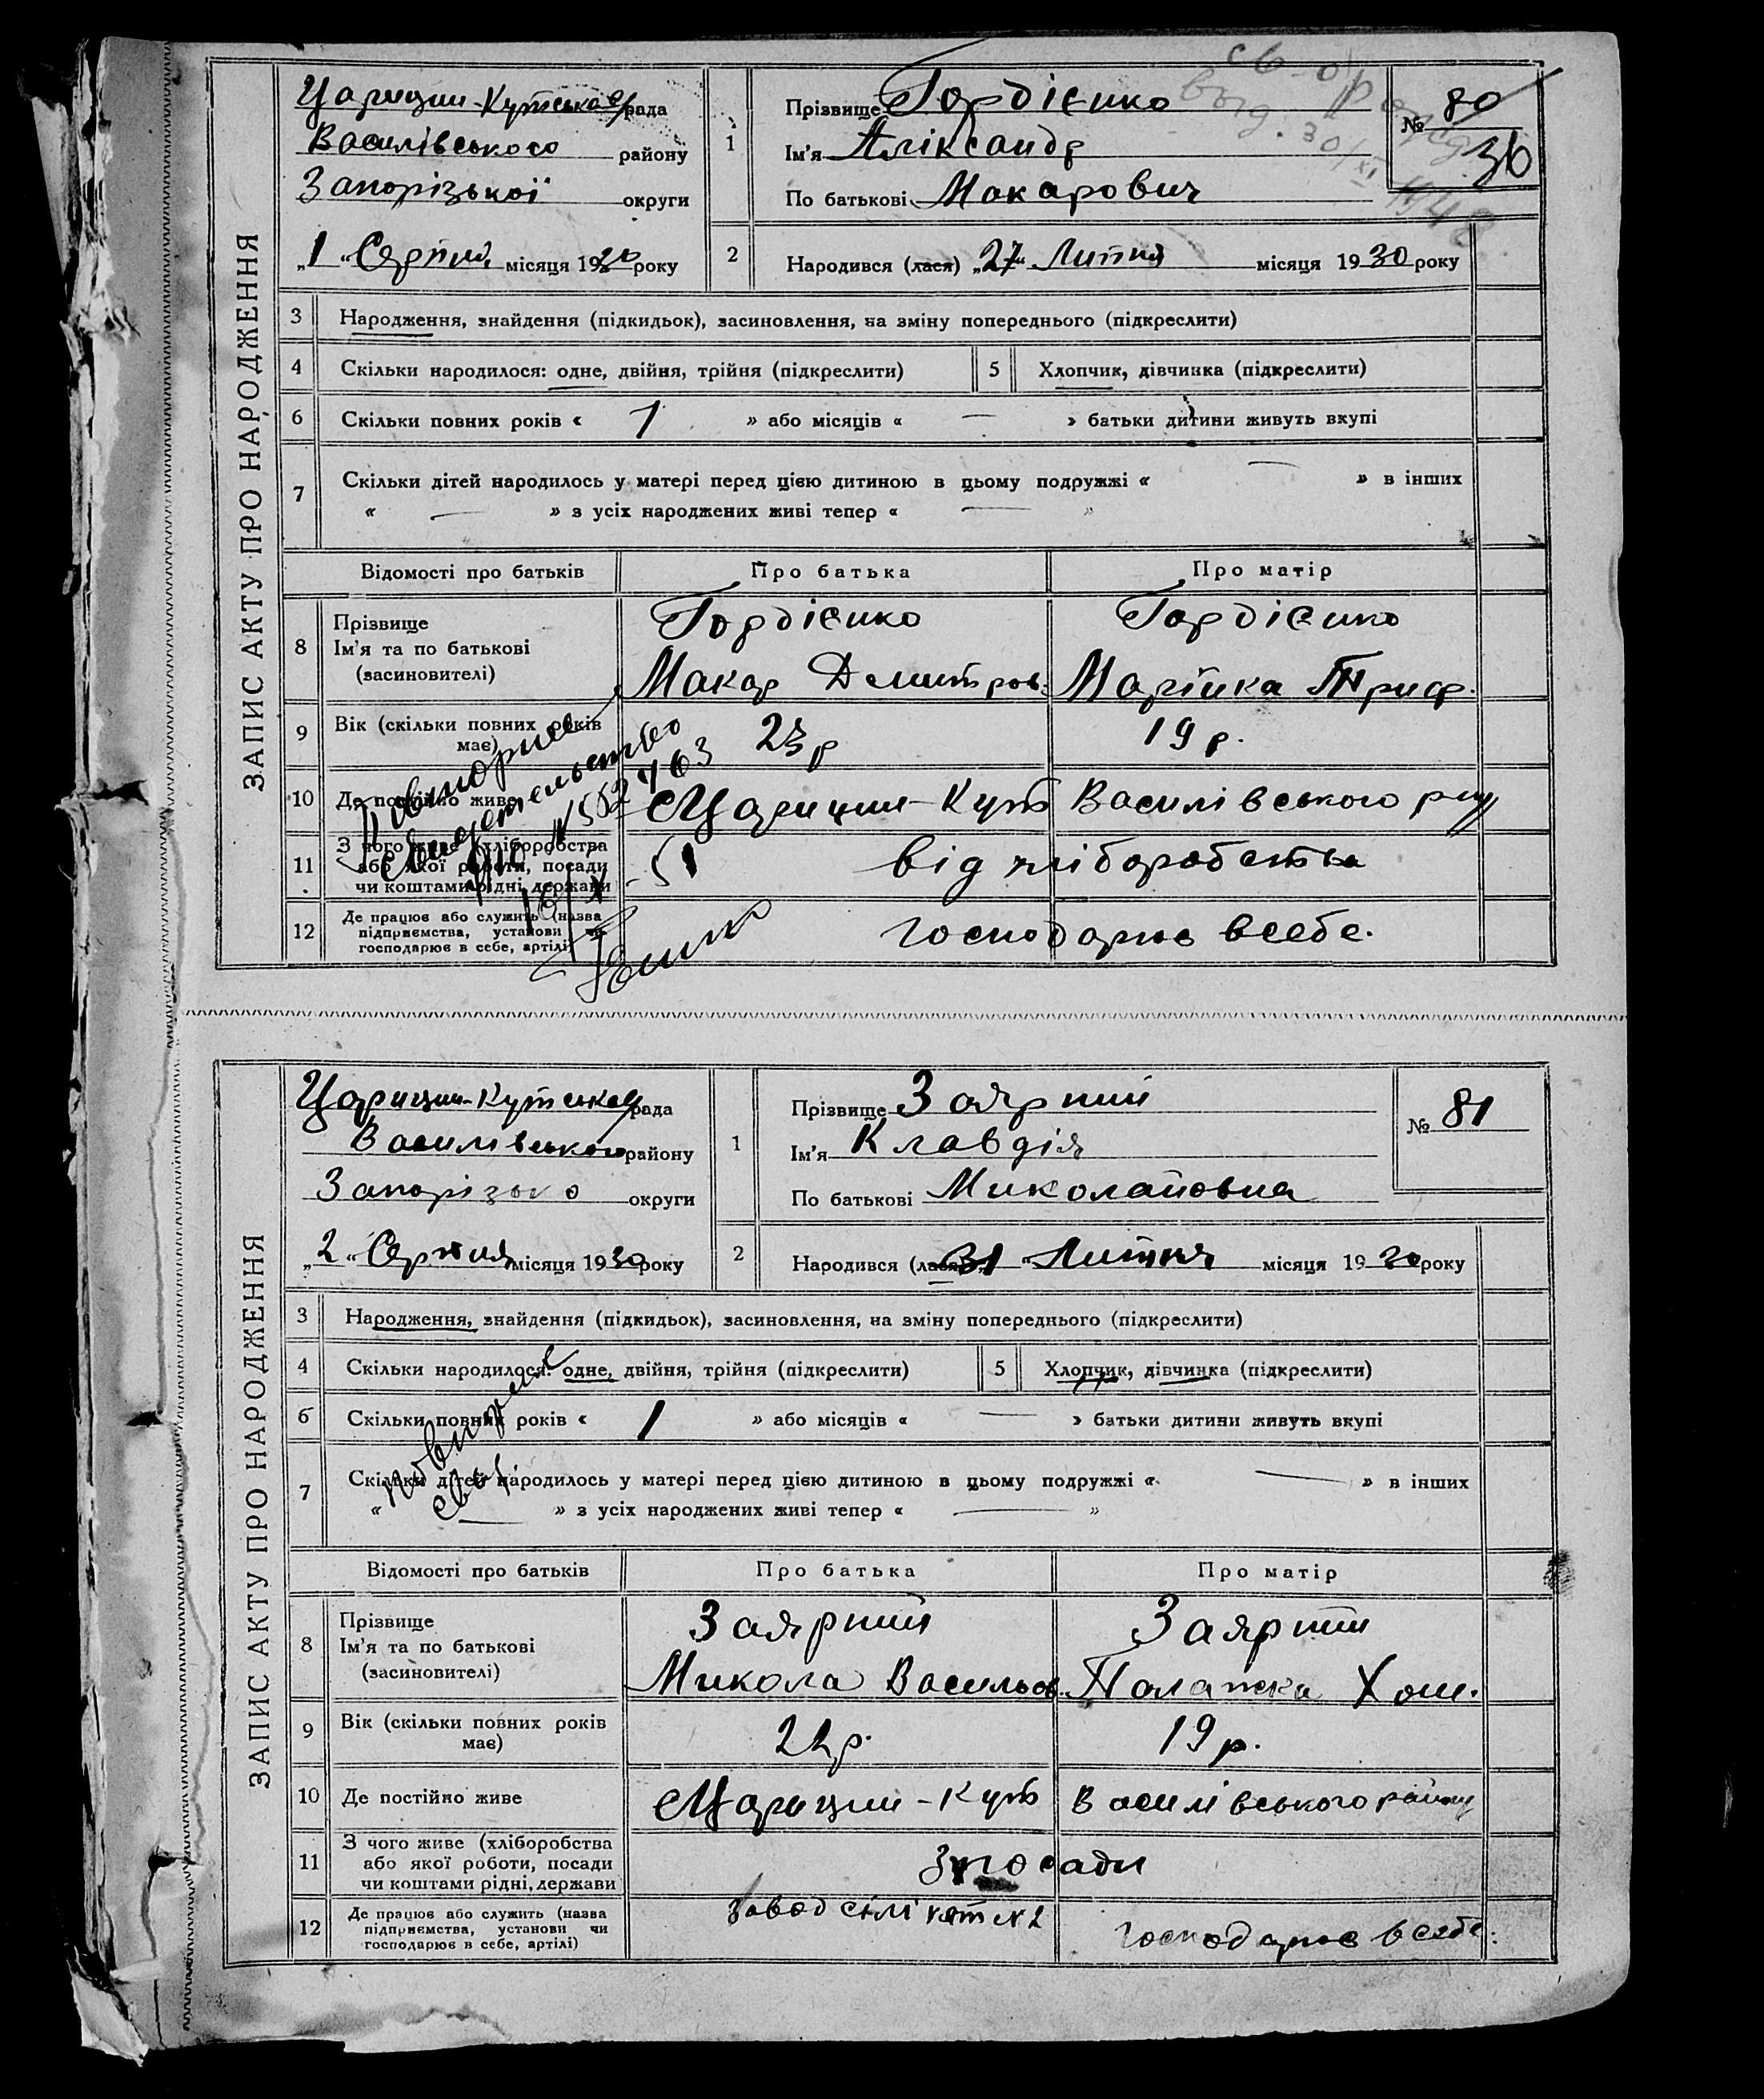 ЗАПИС АКТУ ПРО НАРОДЖЕННЯ
Царицин-Кутська рада
Василівського району
Запорізької округи
„1“ Серпня місяця 1930 року
1
Прізвище Гордієнко
Ім'я Аліксандр
По батькові Макарович
№ 80
36
св-о
выд. 30/XI 1948
2
Народився (лася) „27“ Липня місяця 1930 року
3 Народження, знайдення (підкидьок), засиновлення, на зміну попереднього (підкреслити)
4 Скільки народилося: одне, двійня, трійня (підкреслити) 5 Хлопчик, дівчинка (підкреслити)
6 Скільки повних років « 1 » або місяців « — » батьки дитини живуть вкупі
7 Скільки дітей народилось у матері перед цією дитиною в цьому подружжі « — » в інших
« — » з усіх народжених живі тепер « — »
Відомості про батьків Про батька Про матір
8 Прізвище Гордієнко Гордієнко
Ім'я та по батькові
(засновителі) Макар Дмитров. Марійка Триф.
9 Вік (скільки повних років має) 23 р 19 р.
10 Де постійно живе с Царицин-Кут Василівського р-ну
11 З чого живе (хліборобства або якої роботи, посади чи коштами рідні, держави від хліборобства
12 Де працює або служить (назва підприємства, установи чи господарює в себе, артілі) господарює всебе.
Повторное
свидетельство
ЗАПИС АКТУ ПРО НАРОДЖЕННЯ
Царицин-Кутська рада
Василівського району
Запорізько округи
„2“ Серпня місяця 1930 року
1
Прізвище Заярний
Ім'я Клавдія
По батькові Миколаіовна
№ 81
2
Народився (лася) „31“ Липня місяця 1930 року
3 Народження, знайдення (підкидьок), засиновлення, на зміну попереднього (підкреслити)
4 Скільки народилося: одне, двійня, трійня (підкреслити) 5 Хлопчик, дівчинка (підкреслити)
6 Скільки повних років « 1 » або місяців « — » батьки дитини живуть вкупі
7 Скільки дітей народилось у матері перед цією дитиною в цьому подружжі « — » в інших
« — » з усіх народжених живі тепер « — »
Відомості про батьків Про батька Про матір
8 Прізвище Заярний Заярний
Ім'я та по батькові
(засиновителі) Микола Васильов. Палажка Хом.
9 Вік (скільки повних років має) 22 р. 19 р.
10 Де постійно живе с Царицин-Кут Василівського району
11 З чого живе (хліборобства або якої роботи, посади чи коштами рідні, держави З посади
12 Де працює або служить (назва підприємства, установи чи господарює в себе, артілі) завод сілікат № 2 господарює всебе.